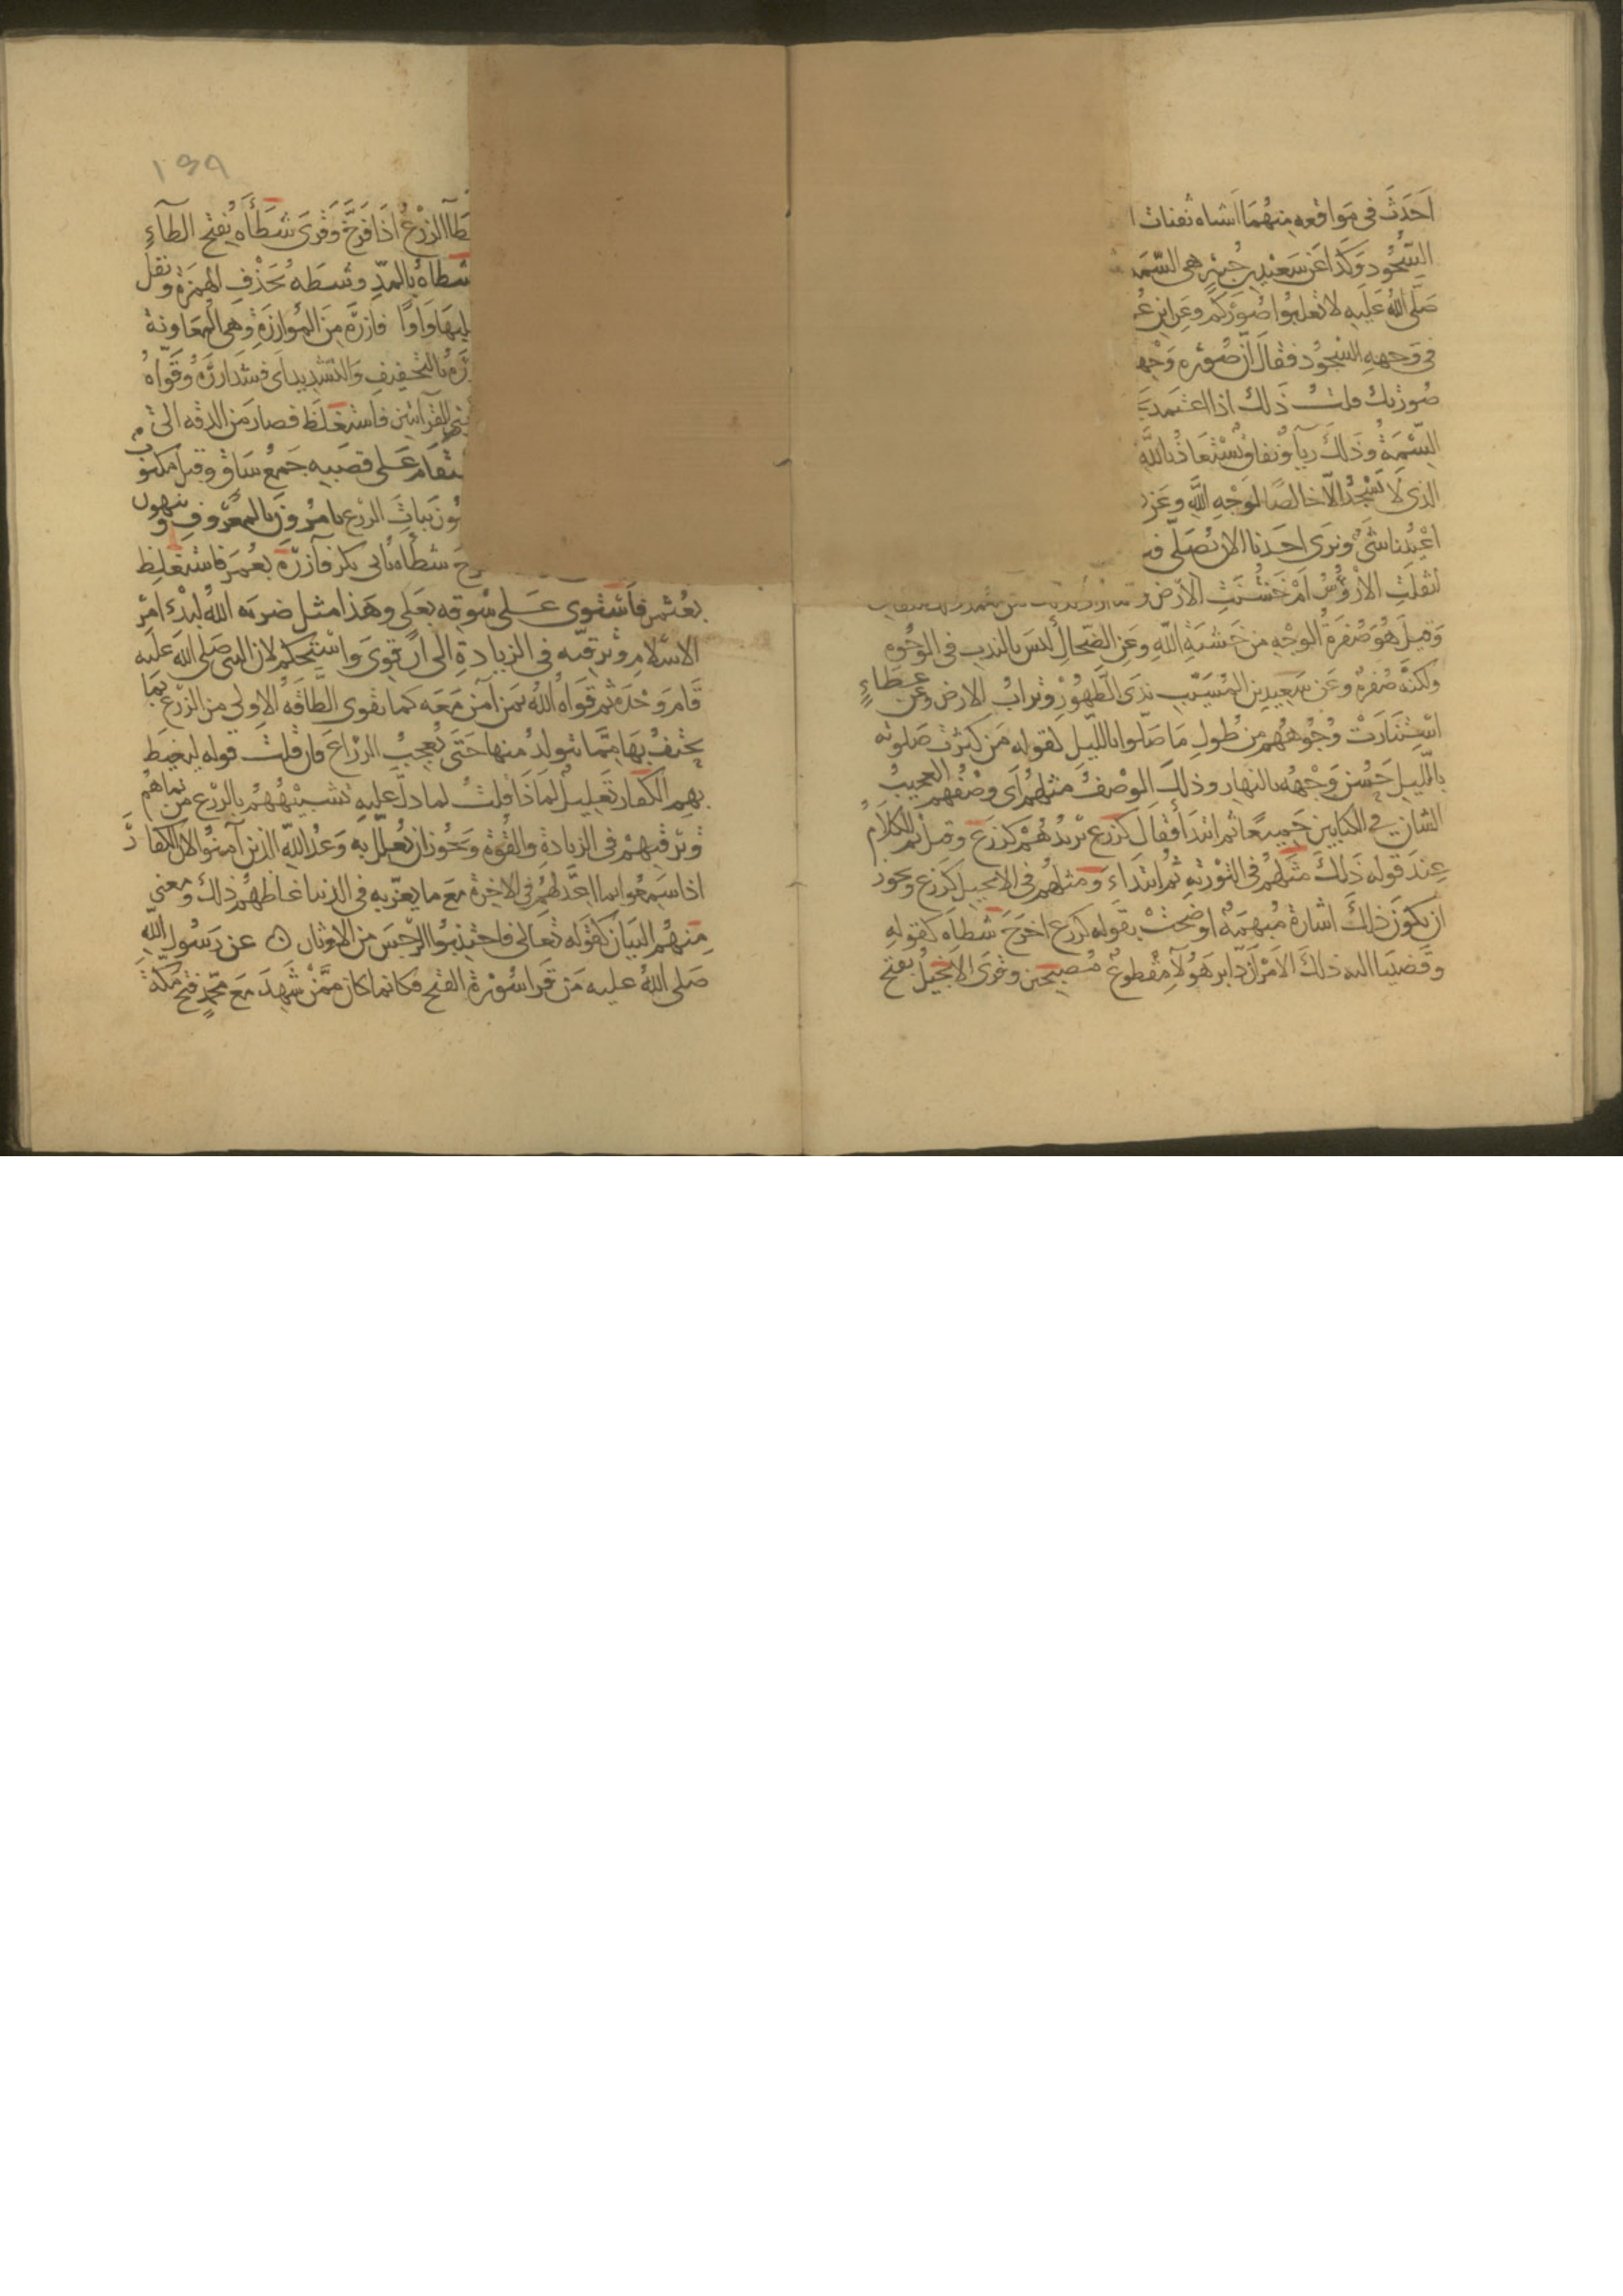 احدث في مواقعه منهما اشباه ثفنات
السجود وكذا عن سعيد بن جبير هي السمة
صلى الله عليه لا تعلبوا صوركم وعن ابن عمر
في وجهه السجود فقال ان صورة وجهك
صورتك قلت ذلك اذا اعتمد
السمة وذلك رياء ونفاق يستعاذ بالله
الذي لا يسجد الا خالصا لوجه الله وعن
بين اعيننا شيء ونرى احدنا الان يصلي
اثقلت الارؤس ام خشنت الارض
وقيل هو صفرة الوجه من خشية الله وعن الضحاك ليس بالندب في الوجوه
ولكنه صفرة وعن سعيد بن المسيب ندى الطهور وتراب الارض وعن عطاء
استنارت وجوههم من طول ما صلوا بالليل لقوله من كثرت صلوته
بالليل حسن وجهه بالنهار وذلك الوصف مثلهم اى وصفهم العجيب
الشان في الكتابين جميعا ثم ابتدا فقال كزرع يريد هم كزرع وقيل تم الكلام
عند قوله ذلك مثلهم في التورية ثم ابتداء ومثلهم في الانجيل كزرع ويجوز
ان يكون ذلك اشارة مبهمة اوضحت بقوله كزرع اخرج شطاه كقوله
وقضينا اليه ذلك الامر ان دابر هولاء مقطوع مصبحين وقرى الانجيل بفتح
١٣٩
الزرع اذا فرخ وقرى شطأه بفتح الطاء
شطاه بالمد وشطه بحذف الهمزة ونقل
بقلبها واوا فازره من الموازرة وهي المعاونة
بالتخفيف والتشديد اى فشد ازره وقواه
القرأتين فاستغلظ فصار من الدقه الى
فاستقام على قصبه جمع ساق وقيل مكتوب
نبات الزرع يامرون بالمعروف وينهون
شطأه بابي بكر فآزره بعمر فاستغلظ
بعثمن فاستوى على سوقه بعلي وهذا مثل ضربه الله لبدء امر
الاسلام وترقيه في الزيادة الى ان قوى واستحكم لان النبي صلى الله عليه
قام وحده ثم قواه الله بمن آمن معه كما تقوى الطاقه الاولى من الزرع بما
يحتف بها مما يتولد منها حتى تعجب الزراع فان قلت قوله ليغيظ
بهم الكفار تعليل لماذا قلت لما دل عليه تشبيههم بالزرع من نماهم
وترقيهم في الزيادة والقوة ويجوز ان يعلل به وعد الله الذين آمنوا لان الكفار
اذا سمعوا بما اعد لهم في الاخرة مع ما يعزبه في الدنيا غاظهم ذلك ومعنى
منهم البيان كقوله تعالى فاجتنبوا الرجس من الاوثان ه عن رسول الله
صلى الله عليه من قرا سورة الفتح فكانما كان ممن شهد مع محمد فتح مكة